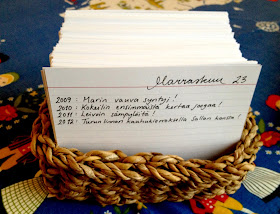 Marraskuu 23
2009: Marin vauva syntyi!
2010: Kokeilin ensimmäistä kertaa joogaa!
2011: Leivoin sämpylöitä!
2012: Turun linnan kauhukierroksella Sallan kanssa!